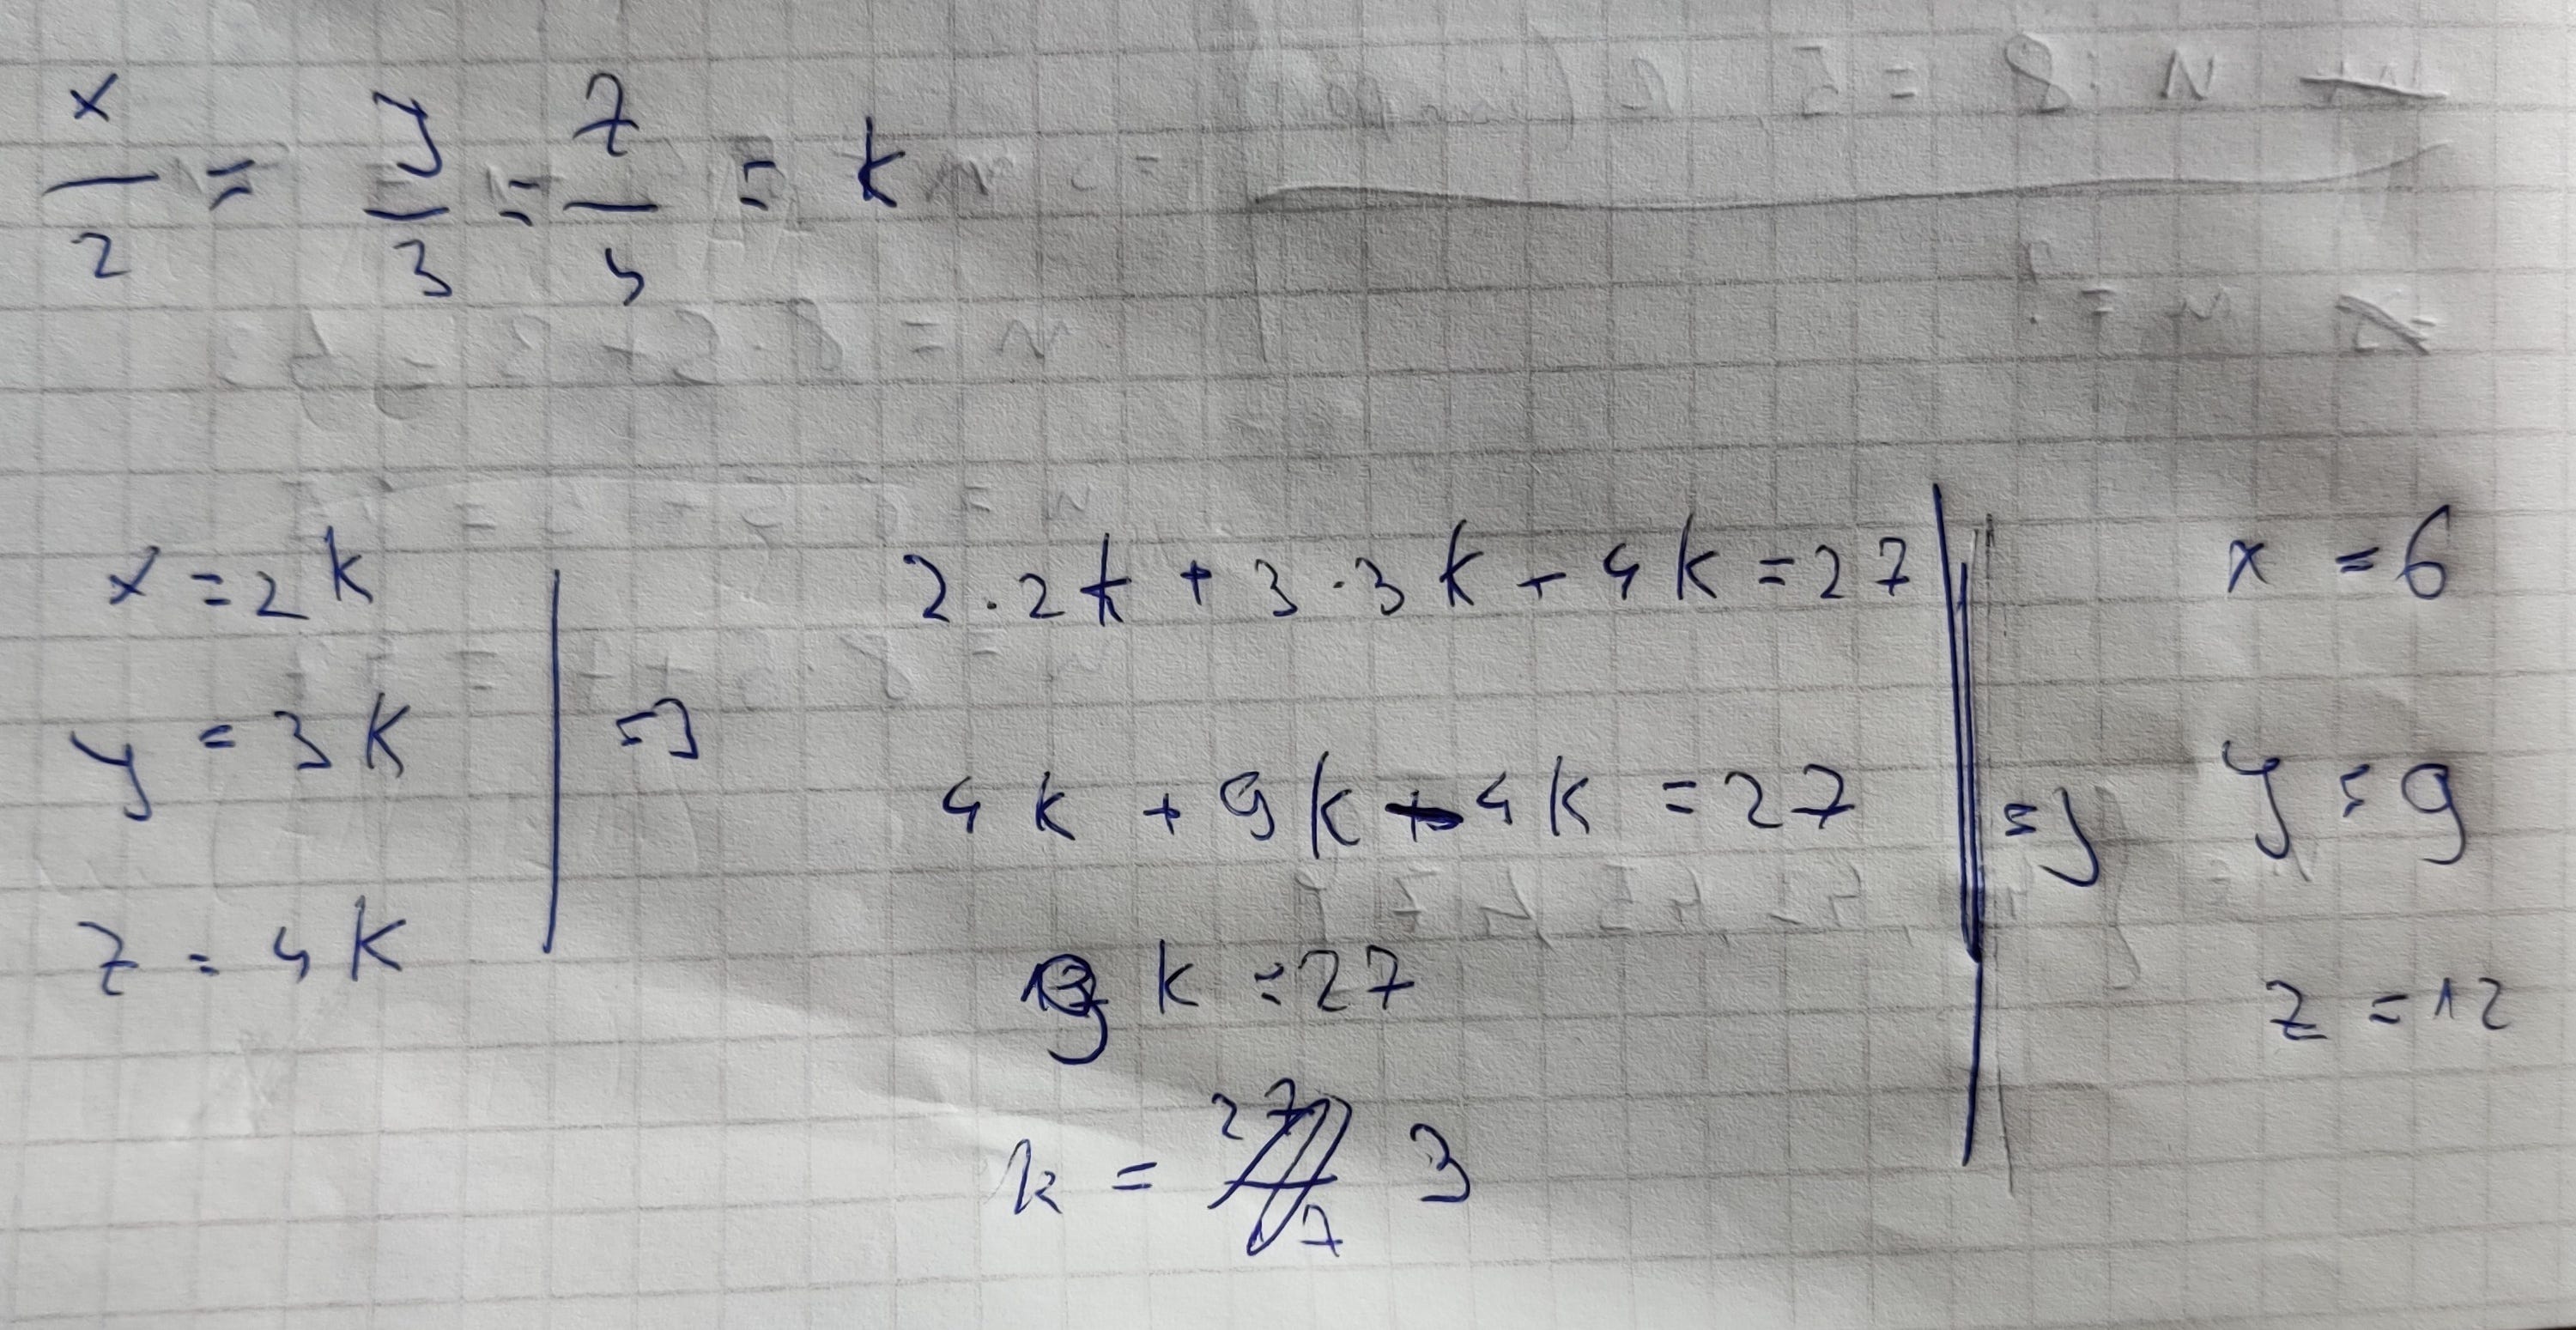 x/2 = y/3 = z/4 = k
x = 2k
y = 3k
z = 4k
=>
2·2k + 3·3k - 4k = 27
4k + 9k - 4k = 27
9k = 27
k = 3
=>
x = 6
y = 9
z = 12